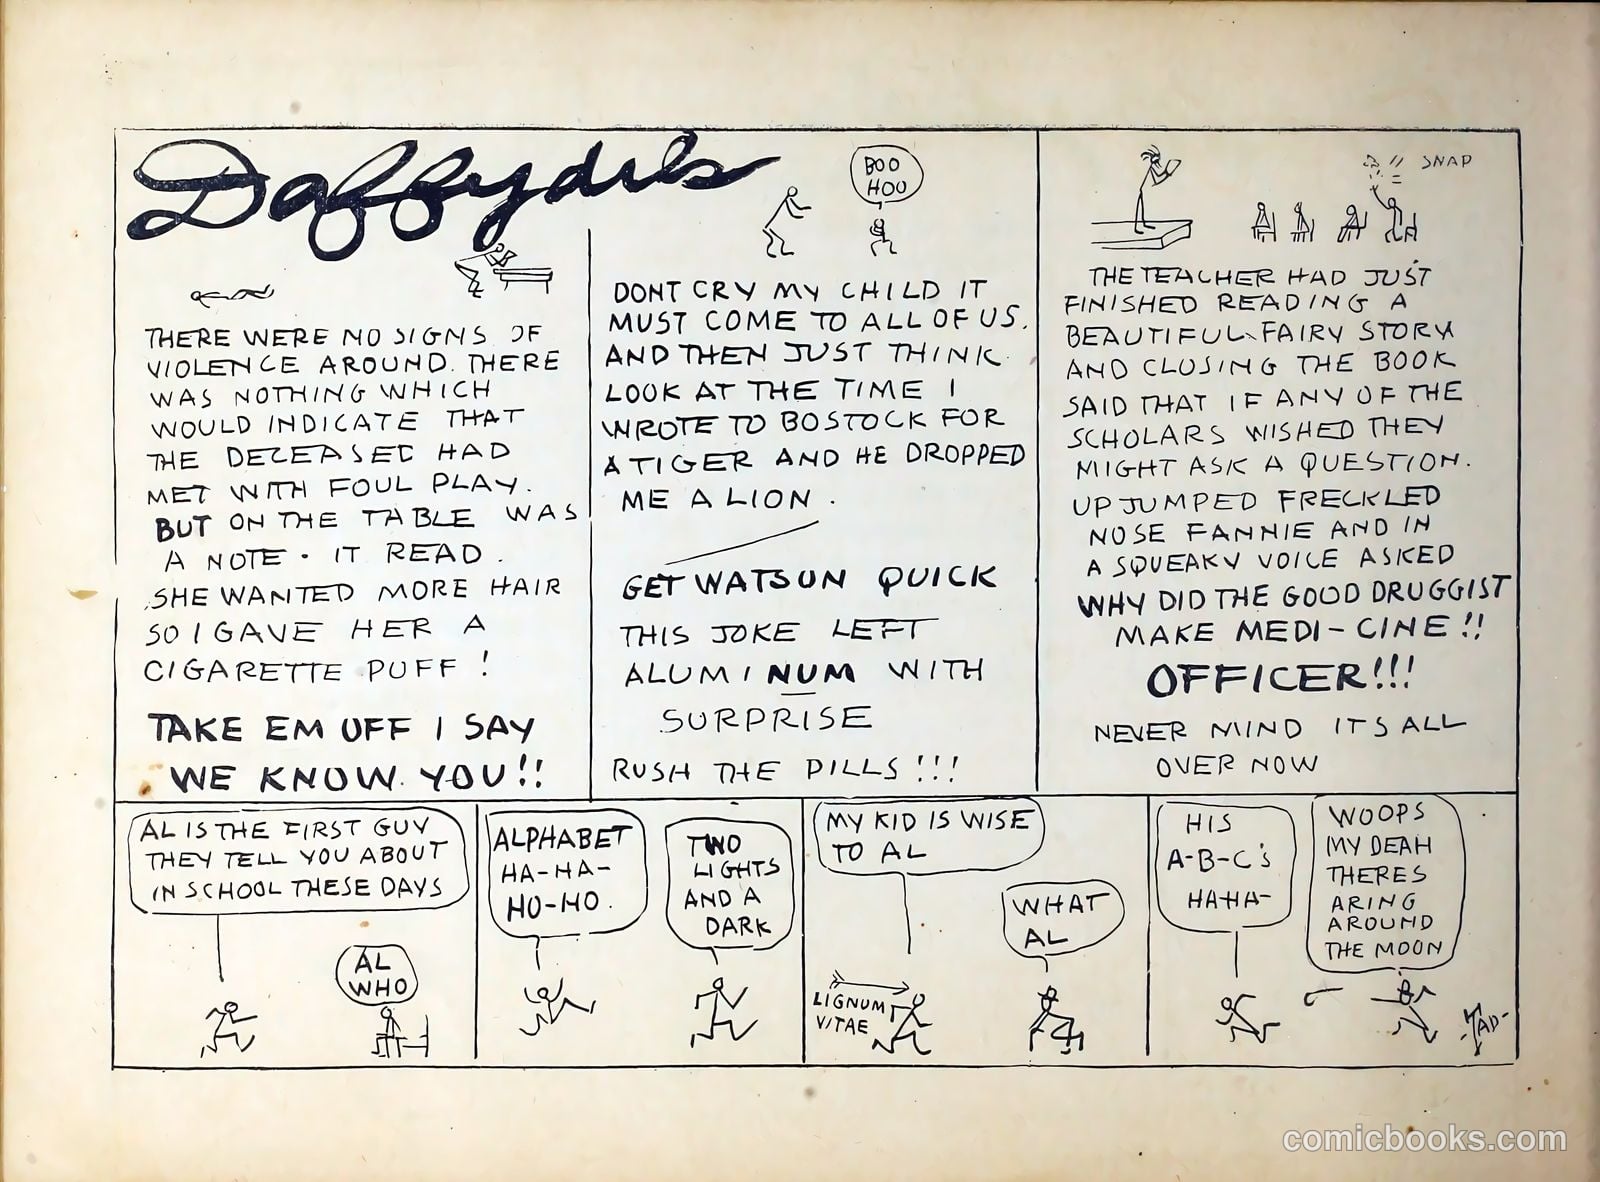 Daffydils
THERE WERE NO SIGNS OF
VIOLENCE AROUND. THERE
WAS NOTHING WHICH
WOULD INDICATE THAT
THE DECEASED HAD
MET WITH FOUL PLAY.
BUT ON THE TABLE WAS
A NOTE. IT READ.
SHE WANTED MORE HAIR
SO I GAVE HER A
CIGARETTE PUFF!
TAKE EM OFF I SAY
WE KNOW YOU!!
BOO
HOO
DONT CRY MY CHILD IT
MUST COME TO ALL OF US.
AND THEN JUST THINK
LOOK AT THE TIME I
WROTE TO BOSTOCK FOR
A TIGER AND HE DROPPED
ME A LION.
GET WATSON QUICK
THIS JOKE LEFT
ALUMINUM WITH
SURPRISE
RUSH THE PILLS!!!
SNAP
THE TEACHER HAD JUST
FINISHED READING A
BEAUTIFUL FAIRY STORY
AND CLOSING THE BOOK
SAID THAT IF ANY OF THE
SCHOLARS WISHED THEY
MIGHT ASK A QUESTION.
UP JUMPED FRECKLED
NOSE FANNIE AND IN
A SQUEAKY VOICE ASKED
WHY DID THE GOOD DRUGGIST
MAKE MEDI-CINE!!
OFFICER!!!
NEVER MIND ITS ALL
OVER NOW
AL IS THE FIRST GUY
THEY TELL YOU ABOUT
IN SCHOOL THESE DAYS
AL
WHO
ALPHABET
HA-HA-
HO-HO.
TWO
LIGHTS
AND A
DARK
MY KID IS WISE
TO AL
LIGNUM
VITAE
WHAT
AL
HIS
A-B-C's
HA-HA-
WOOPS
MY DEAH
THERES
ARING
AROUND
THE MOON
TAD-
comicbooks.com